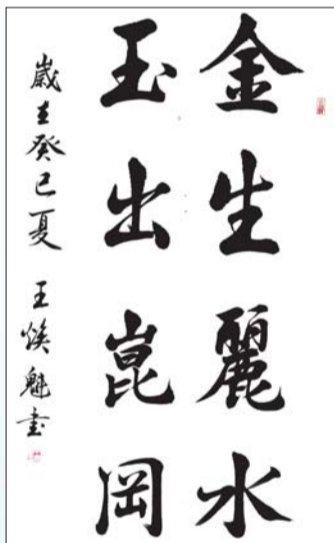 金生麗水
玉出崑岡
歲在癸巳夏 王煥魁書